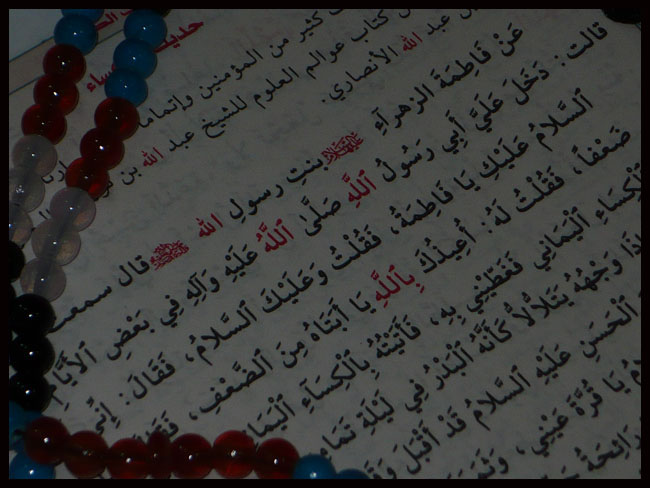 حديث
كساء
كثير من المؤمنين وإتماما
كتاب عوالم العلوم للشيخ عبد الله بن
عبد الله الأنصاري:
عَنْ فَاطِمَةَ الزهرآءِ عليها السلام بنتِ رسولِ الله ﷺ قال سمعت
قالت: دَخَلَ عَلَيَّ أَبِي رَسُولُ ٱللَّهِ صَلَّىٰ ٱللَّهُ عَلَيْهِ وَآلِهِ فِي بَعْضِ ٱلأَيَّامِ
ٱلسَّلامُ عَلَيْكِ يَا فَاطِمَةُ، فَقُلْتُ وَعَلَيْكَ ٱلسَّلامُ، فَقَالَ: إِنِّي
ضَعْفاً، فَقُلْتُ لَهُ: أُعِيذُكَ بِٱللَّهِ يَا أَبَتَاهُ مِنَ ٱلضَّعْفِ،
بِٱلْكِسَاءِ ٱلْيَمَانِي فَغَطِّينِي بِهِ، فَأَتَيْتُهُ بِٱلْكِسَاءِ ٱلْيَمَا
وَجْهُهُ يَتَلَأْلَأُ كَأَنَّهُ ٱلْبَدْرُ فِي لَيْلَةِ تَمَا
ٱلْحَسَنِ عَلَيْهِ ٱلسَّلامُ قَدْ أَقْبَلَ
يَا قُرَّةَ عَيْنِي،
رَائِحَةً